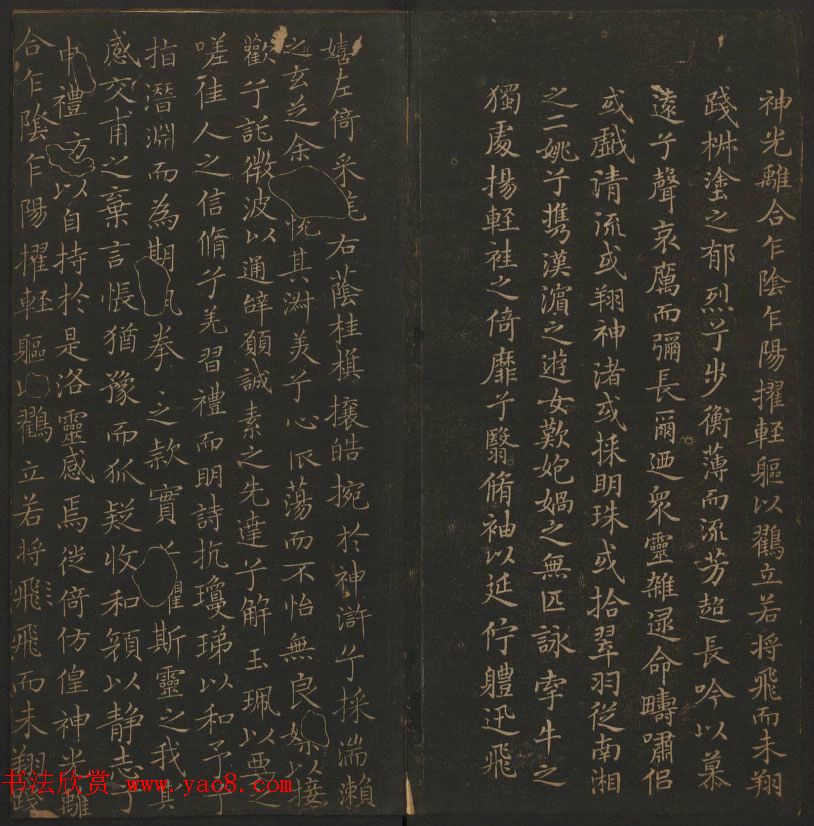 神光離合乍陰乍陽擢輕軀以鸖立若將飛而未翔
踐椒塗之郁烈兮步衡薄而流芳超長吟以慕
遠兮聲哀厲而彌長爾迺衆靈雜遝命疇嘯侶
或戲清流或翔神渚或採明珠或拾翠羽從南湘
之二姚兮攜漢濱之遊女歎匏媧之無匹詠牽牛之
獨處揚輕袿之倚靡兮翳脩袖以延佇軆迅飛
嬉左倚采旄右蔭桂旗攘皓捥於神滸兮採湍瀬
之玄芝余悅其淑美兮心振蕩而不怡無良媒以接
歡兮託微波以通辝願誠素之先達兮解玉珮以要之
嗟佳人之信脩兮羌習禮而明詩抗瓊珶以和予兮
指潛淵而為期執拳之款實兮懼斯靈之我其
感交甫之棄言悵猶豫而狐疑收和顏以靜志兮
申禮方以自持於是洛靈感焉徙倚仿偟神光離
合乍陰乍陽擢輕軀以鸖立若將飛飛而未翔踐
书法欣赏 www.yac8.com